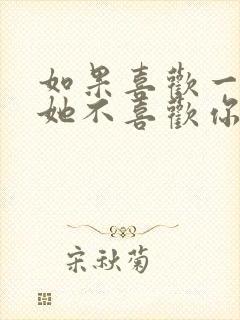 如果喜歡一
她不喜歡你
宋秋菊